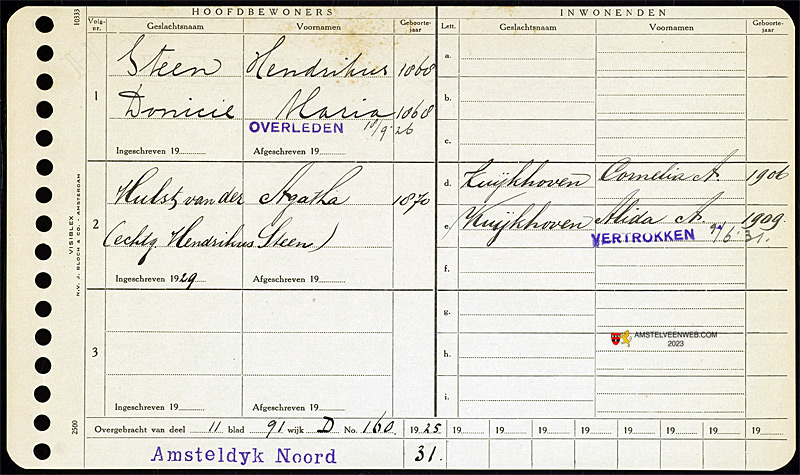 HOOFDBEWONERS
INWONENDEN
Volg-nr. Geslachtsnaam Voornamen Geboorte-jaar
Lett. Geslachtsnaam Voornamen Geboorte-jaar
10333
1
Steen Hendrikus 1868
Donicie Maria 1868
OVERLEDEN 18/9-26
Ingeschreven 19 Afgeschreven 19
2
Hulst van der Agatha 1870
(echtg. Hendrikus Steen)
Ingeschreven 1929 Afgeschreven 19
3
Ingeschreven 19 Afgeschreven 19
a.
b.
c.
d. Kuijkhoven Cornelia A. 1906
e. Kuijkhoven Alida A. 1909.
VERTROKKEN 6 31.
f.
g.
h.
i.
AMSTELVEENWEB.COM
2023
VISIBLEX
N.V. J. BLOCH & CO. - AMSTERDAM
2500
Overgebracht van deel 11 blad 91 wijk D No. 160. 1925. 19 19 19 19 19 19 19 19
Amsteldyk Noord 31.